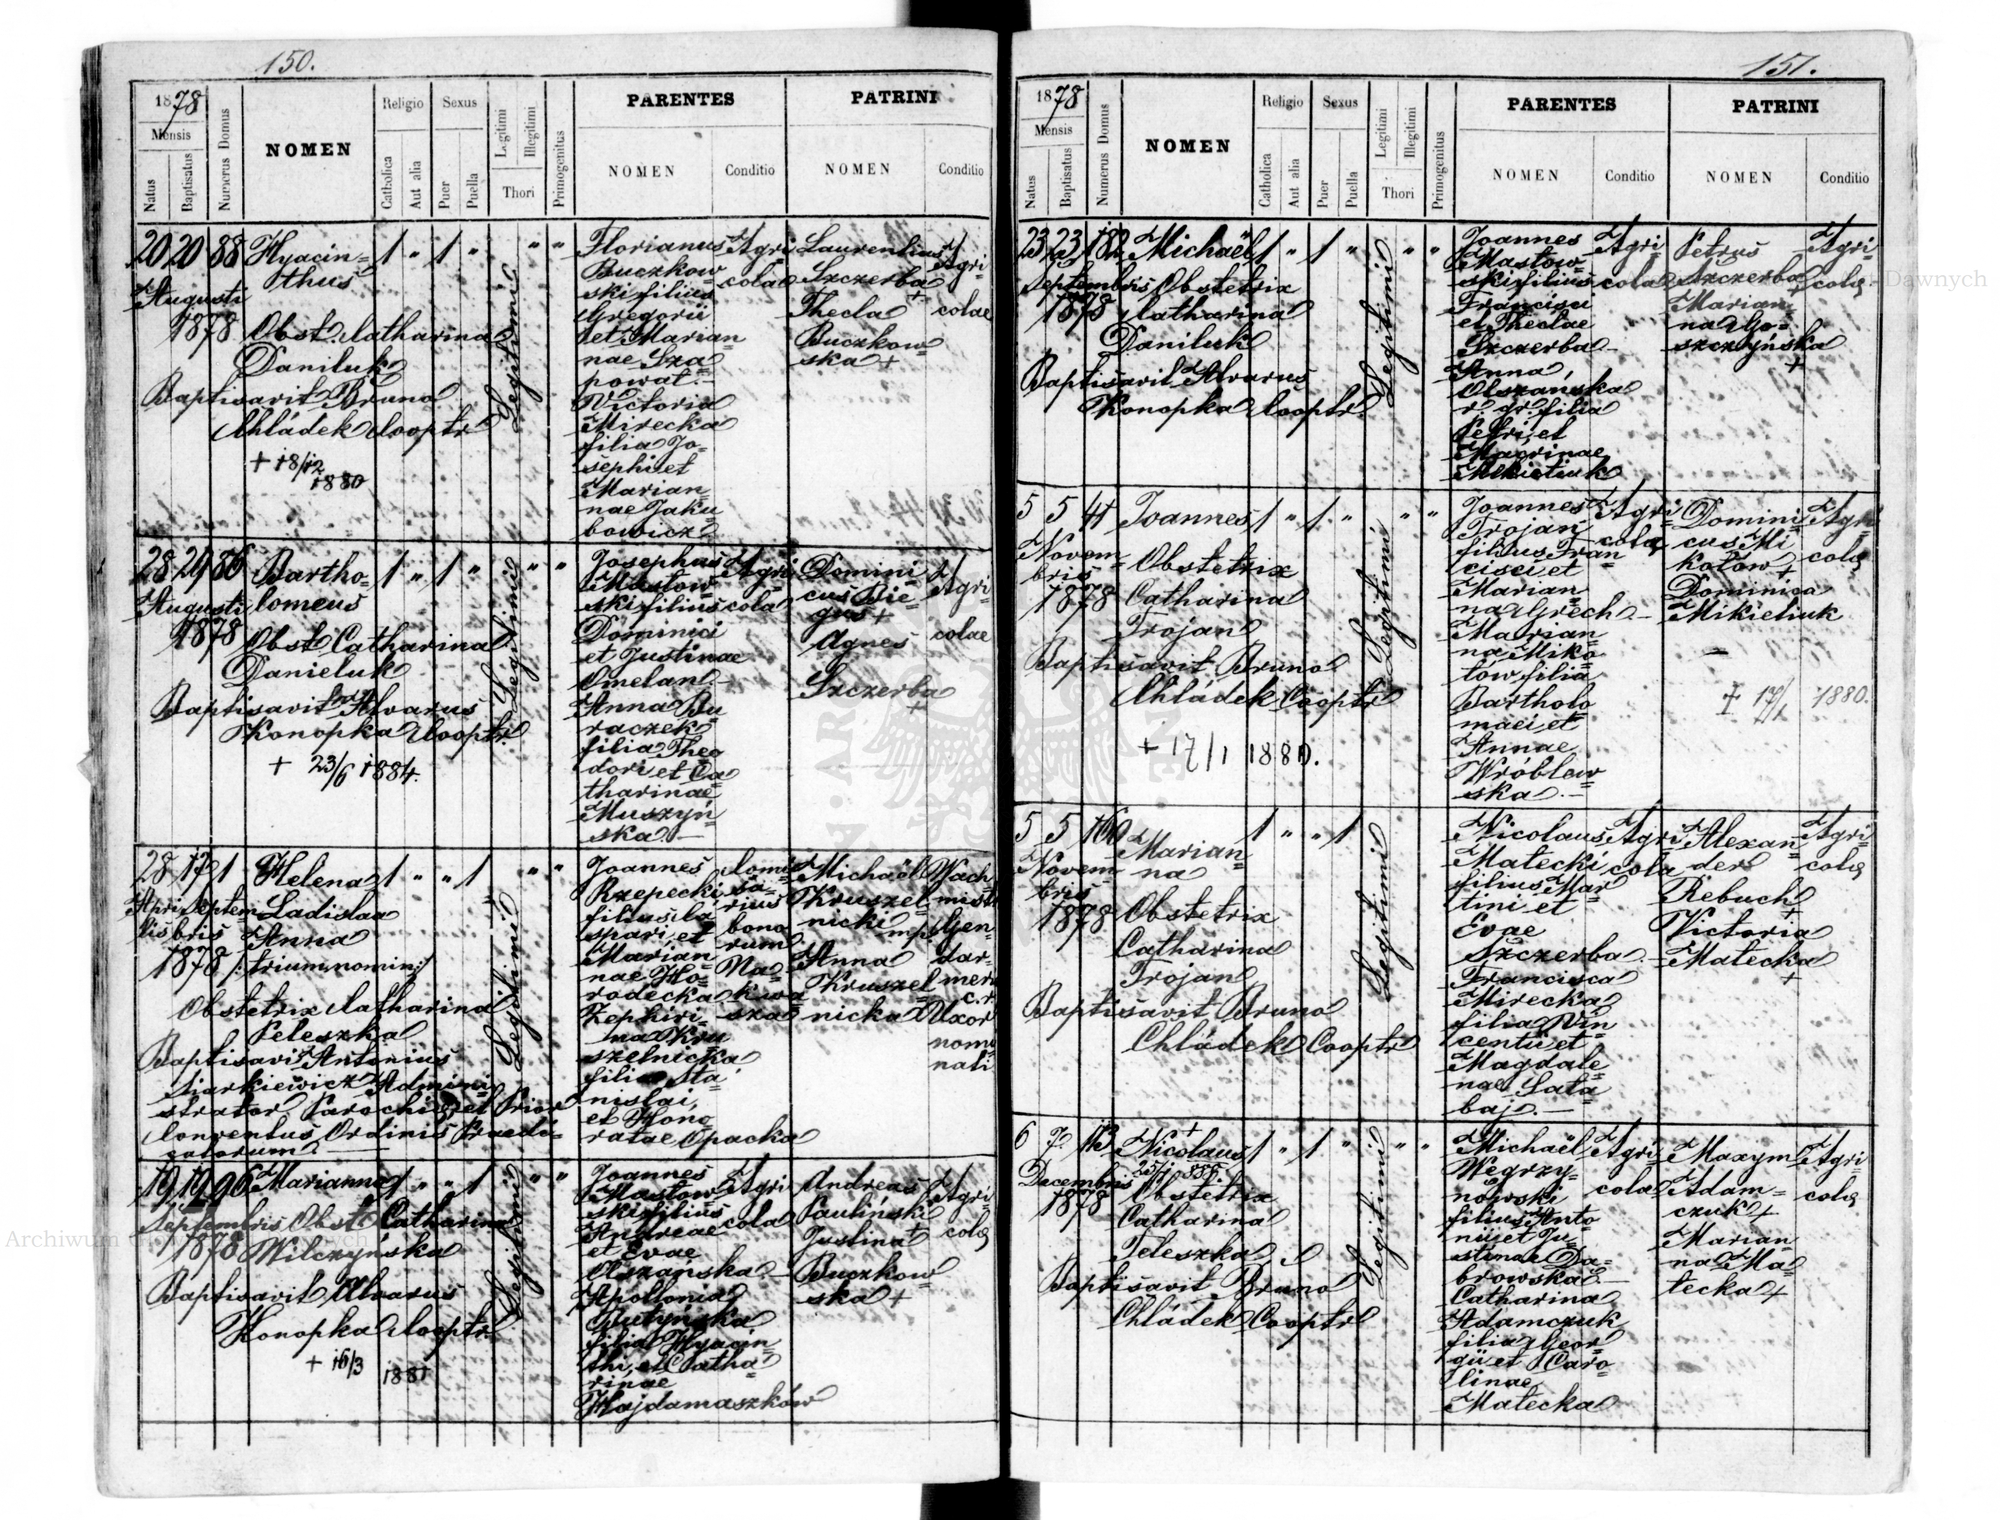 150.
1878
Mensis
Natus
Baptisatus
Numerus Domus
NOMEN
Religio
Catholica
Aut alia
Sexus
Puer
Puella
Legitimi
Illegitimi
Thori
Primogenitus
PARENTES
NOMEN
Conditio
PATRINI
NOMEN
Conditio
20 20 88 Hyacin=
thus
1 " 1 " " "
Augusti
1878 Obst. Catharina
Daniluk
Baptisavit Bruno
Chládek Cooptr
+ 18/12
1880
Legitimi
Florianus
Buczkow
ski filius
Gregorii
et Marian=
nae Sza=
powat.—
Victoria
Mirecka
filia Jo=
sephi et
Marian=
nae Jaku=
bowicz
Agri
cola
Laurentius
Szczerba
+
Thecla
Buczkow=
ska +
Agri=
colae
28 29 86 Bartho=
lomeus
1 " 1 " " "
Augusti
1878
Obst. Catharina
Danieluk
Baptisavit Alvarus
Konopka Cooptr
+ 23/6 1884.
Legitimi
Josephus
Masłow=
ski filius
Dominici
et Justinae
Omelan.—
Anna Bu=
raczek
filia Theo
dori et Ca
tharinae
Muszyń=
ska.—
Agri
cola
Domini
cus
+
Agnes
Szczerba
+
Agri=
colae
28 17 1 Helena
1 " " 1 " "
Apri= Septem=
lis bris
1878
Ladislaa
Anna
/: trium nomin:/
Obstetrix Catharina
Peleszka
Baptisavit Antonius
Siarkiewicz Admini=
strator Parochiae et Prior
Conventus Ordinis Praedi=
catorum.—
Legitimi
Joannes
Rzepecki
filius Ca
spari, et
Marian=
nae Ho=
rodecka
Zephiri=
na Kru
szelnicka
filia Sta=
nislai,
et Hono=
ratae Opacka
Comi=
sa=
rius
bono
rum
Na=
kwa
sza
Michaël
Kruszel=
nicki mp
Anna
Kruszel=
nicka
Wach=
mistr
Gen=
dar=
mer
c.r.
Uxor
nomi
nati
19 19 96 Marianna
1 " " 1 " "
Septembris
1878
Obst. Catharina
Wilczyńska
Baptisavit Alvarus
Konopka Cooptr
+ 16/3 1881
Legitimi
Joannes
Masłow=
ski filius
Andreae
et Evae
Olszańska.—
Apollonia
filia Hyacin=
thi, et Catha=
rinae
Hajdamaszków
Agri
cola
Andreas
Pauliński
Justina
Buczkow=
ska +
Agri=
colae
151.
1878
Mensis
Natus
Baptisatus
Numerus Domus
NOMEN
Religio
Catholica
Aut alia
Sexus
Puer
Puella
Legitimi
Illegitimi
Thori
Primogenitus
PARENTES
NOMEN
Conditio
PATRINI
NOMEN
Conditio
23 23 182 Michaël
1 " 1 " " "
Septembris
1878
Obstetrix
Catharina
Daniluk
Baptisavit Alvarus
Konopka Cooptr
Legitimi
Joannes
Masłow=
ski filius
Francisci
et Theclae
Szczerba.—
Anna
Olszańska
r. gr. filia
Petri, et
Marinae
Mikietiuk
Agri=
cola
Petrus
Szczerba
Marian=
na Go=
szczyńska
+
Agri=
colae
5 5 41 Joannes
1 " 1 " " "
Novem=
bris
1878
Obstetrix
Catharina
Trojan
Baptisavit Bruno
Chládek Cooptr
+ 17/1 1880.
Legitimi
Joannes
Trojan
filius Fran
cisci et
Marian=
na Grech.—
Marian=
na Miko=
tów filia
Bartholo
maei et
Annae
Wróblew=
ska.—
Agri
cola
Domini=
cus Mi
kotów +
Dominica
Mikietiuk
—
+ 17/1 1880.
Agri
colae
5 5 160 Marian=
na
1 " " 1
Novem=
bris
1878
Obstetrix
Catharina
Trojan
Baptisavit Bruno
Chládek Cooptr
Legitimi
Nicolaus
Matecki
filius Mar
tini et
Evae
Szczerba.—
Francisca
Mirecka
filia Vin=
centii et
Magdale
nae Sała=
baj.—
Agri=
cola
Alexan=
der
Rebuch
+
Victoria
Matecka
+
Agri
colae
6 7 113 Nicolaus
+ 25/1 885.
1 " 1 " " "
Decembris
1878
Obstetrix
Catharina
Peleszka
Baptisavit Bruno
Chládek Cooptr
Legitimi
Michaël
Węgrzy=
nowski
filius Anto
nii et Ju=
stinae Da=
browska.—
Catharina
Adamczuk
filia Geor=
gii et Caro
linae
Matecka
Agri
cola
Maxym
Adam=
czuk +
Marian=
na Ma=
tecka +
Agri
colae